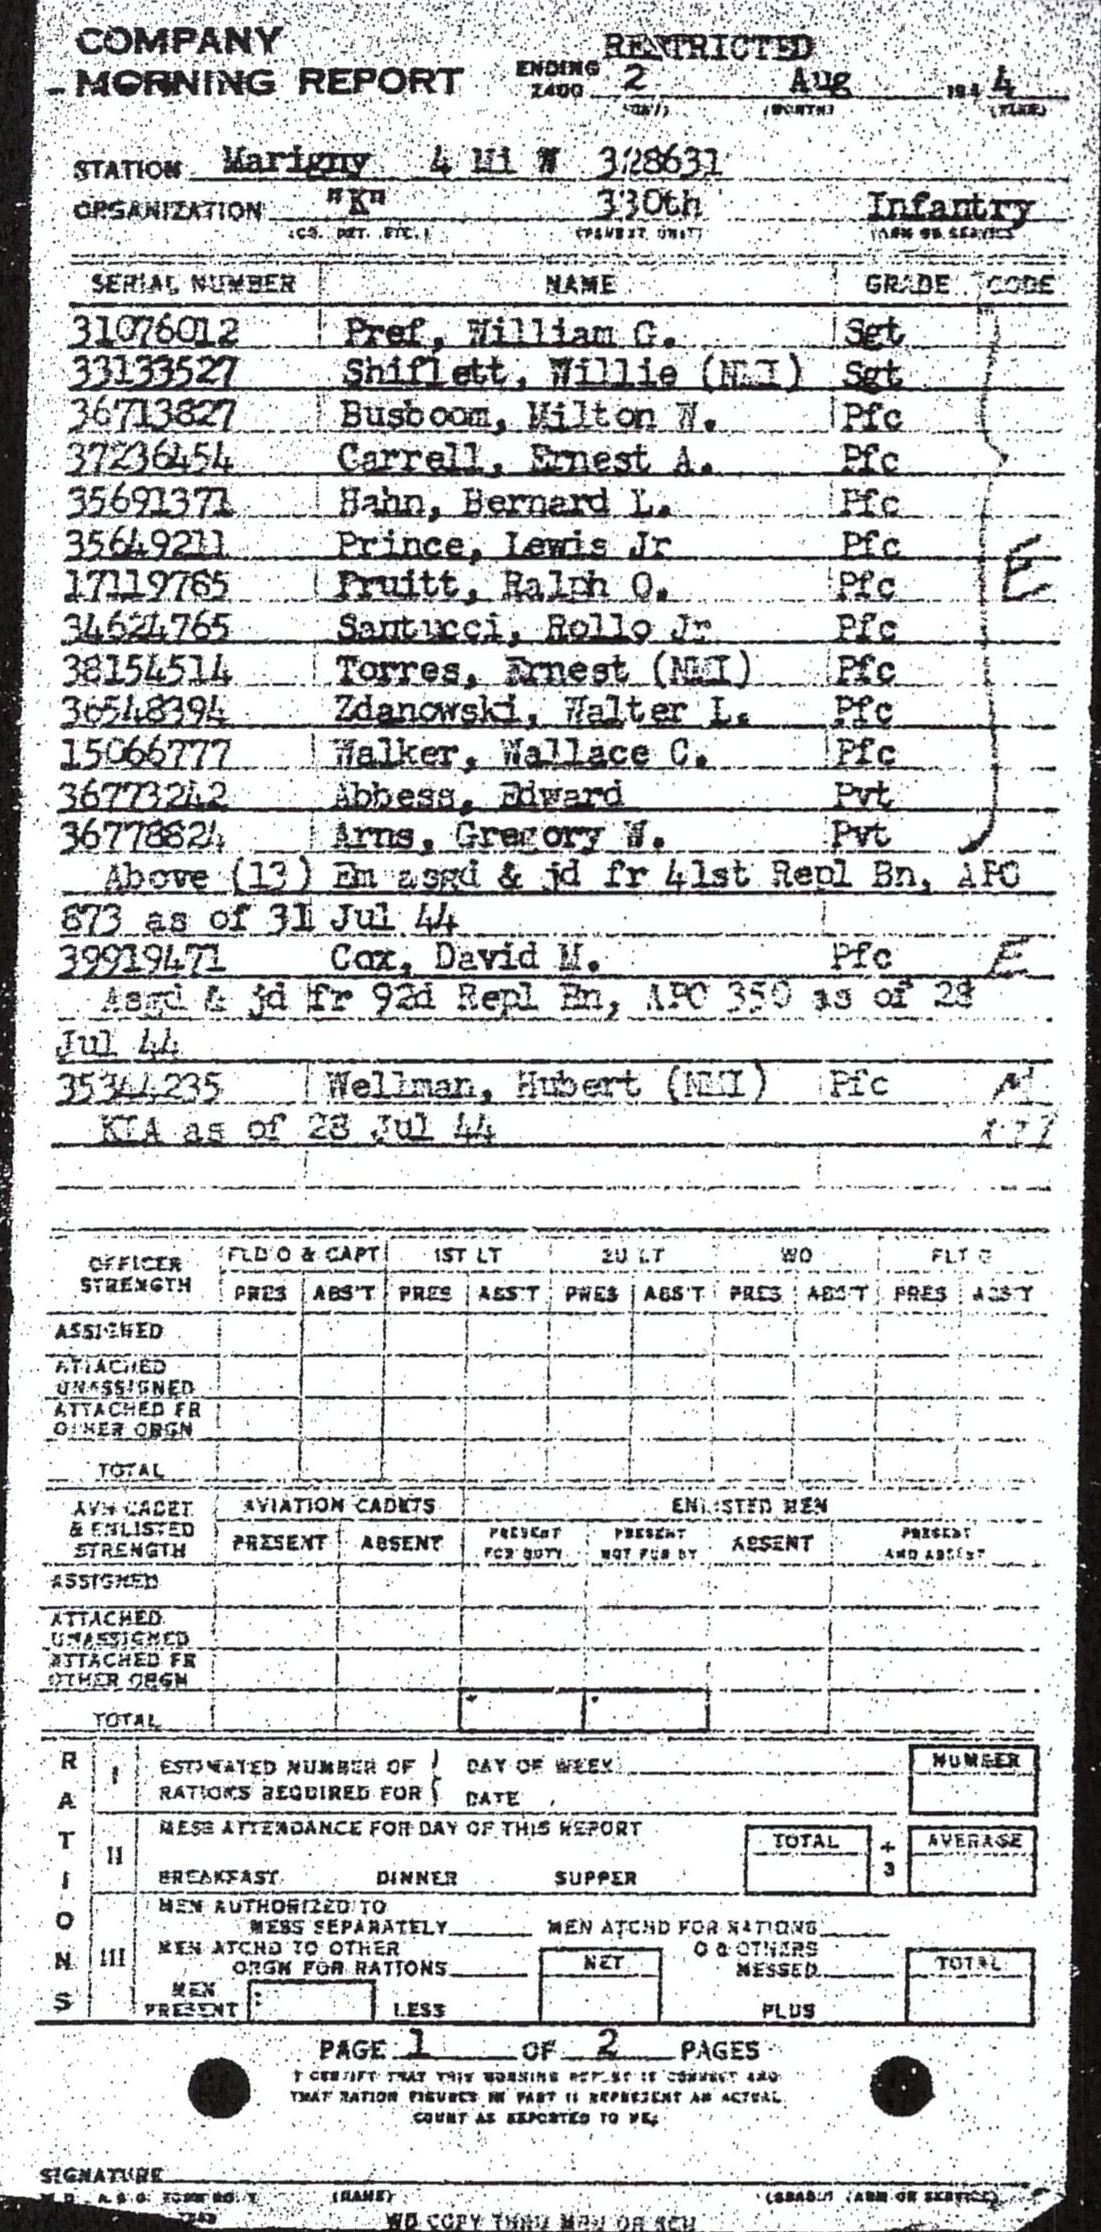 COMPANY
MORNING REPORT
RESTRICTED
ENDING 2400 2 Aug 194 4
(DAY) (MONTH) (YEAR)
STATION Marigny 4 Mi W 328631
ORGANIZATION "K" 330th Infantry
(CO. DET. ETC.) (PARENT UNIT) (ARM OR SERVICE)
SERIAL NUMBER NAME GRADE CODE
31076012 Pref, William G. Sgt
33133527 Shiflett, Willie (NMI) Sgt
36713827 Busboom, Milton W. Pfc
37236454 Carrell, Ernest A. Pfc
35691371 Hahn, Bernard L. Pfc
35649211 Prince, Lewis Jr Pfc E
17119765 Pruitt, Ralph O. Pfc
34624765 Santucci, Rollo Jr Pfc
38154514 Torres, Ernest (NMI) Pfc
36548394 Zdanowski, Walter L. Pfc
15066777 Walker, Wallace C. Pfc
36773242 Abbess, Edward Pvt
36778824 Arns, Gregory W. Pvt
Above (13) Em asgd & jd fr 41st Repl Bn, APO
873 as of 31 Jul 44
39919471 Cox, David M. Pfc E
Asgd & jd fr 92d Repl Bn, APO 350 as of 28
Jul 44
35344235 Wellman, Hubert (NMI) Pfc
KIA as of 28 Jul 44
OFFICER STRENGTH FLD O & CAPT 1ST LT 2D LT WO FLT O
PRES ABS'T PRES ABS'T PRES ABS'T PRES ABS'T PRES ABS'T
ASSIGNED
ATTACHED UNASSIGNED
ATTACHED FR OTHER ORGN
TOTAL
AVN CADET & ENLISTED STRENGTH AVIATION CADETS ENLISTED MEN
PRESENT ABSENT PRESENT FOR DUTY PRESENT NOT FOR DY ABSENT PRESENT AND ABSENT
ASSIGNED
ATTACHED UNASSIGNED
ATTACHED FR OTHER ORGN
TOTAL
RATIONS
I ESTIMATED NUMBER OF RATIONS REQUIRED FOR DAY OF WEEK DATE NUMBER
II MESS ATTENDANCE FOR DAY OF THIS REPORT TOTAL ÷ 3 AVERAGE
BREAKFAST DINNER SUPPER
III MEN AUTHORIZED TO MESS SEPARATELY MEN ATCHD FOR RATIONS
MEN ATCHD TO OTHER ORGN FOR RATIONS NET O & OTHERS MESSED TOTAL
MEN PRESENT LESS PLUS
PAGE 1 OF 2 PAGES
I CERTIFY THAT THIS MORNING REPORT IS CORRECT AND
THAT RATION FIGURES IN PART II REPRESENT AN ACTUAL
COUNT AS REPORTED TO ME:
SIGNATURE
(NAME) (GRADE) (ARM OR SERVICE)
WD COPY THRU MRU OR